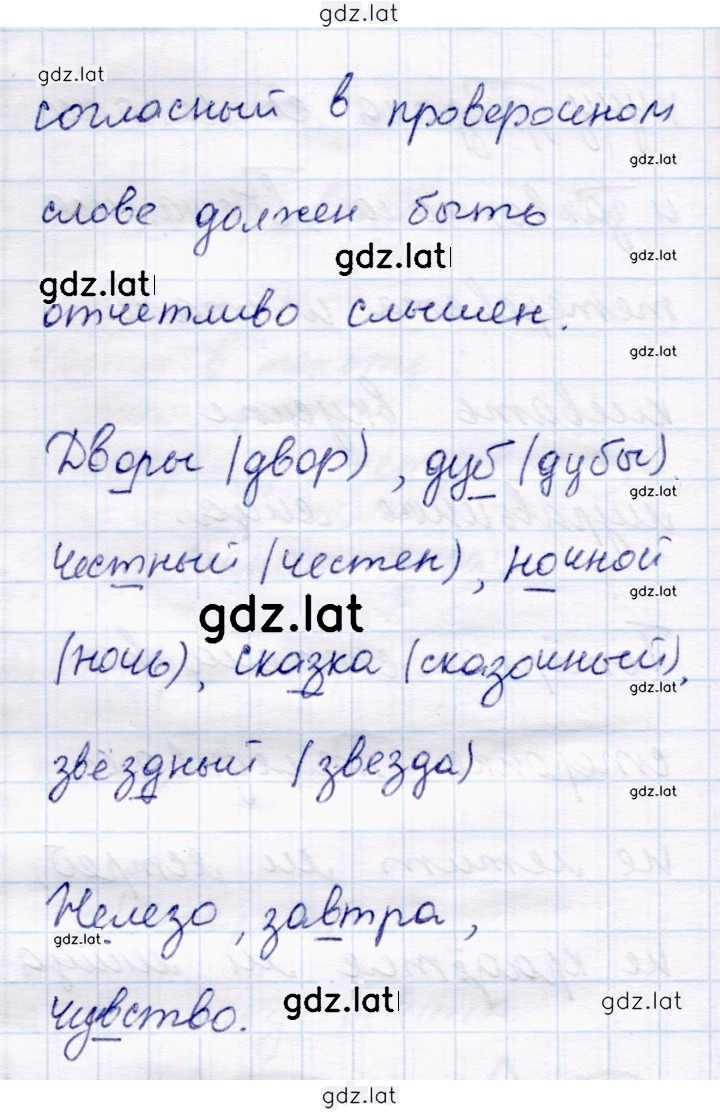 gdz.lat
gdz.lat
согласный в проверочном
gdz.lat
слове должен быть
gdz.lat
gdz.lat
gdz.lat
отчетливо слышен.
gdz.lat
Дворы (двор), дуб (дубы)
gdz.lat
честный (честен), ночной
gdz.lat
gdz.lat
(ночь), сказка (сказочный),
gdz.lat
звёздный (звезда)
gdz.lat
Железо, завтра,
gdz.lat
чувство.
gdz.lat
gdz.lat
gdz.lat